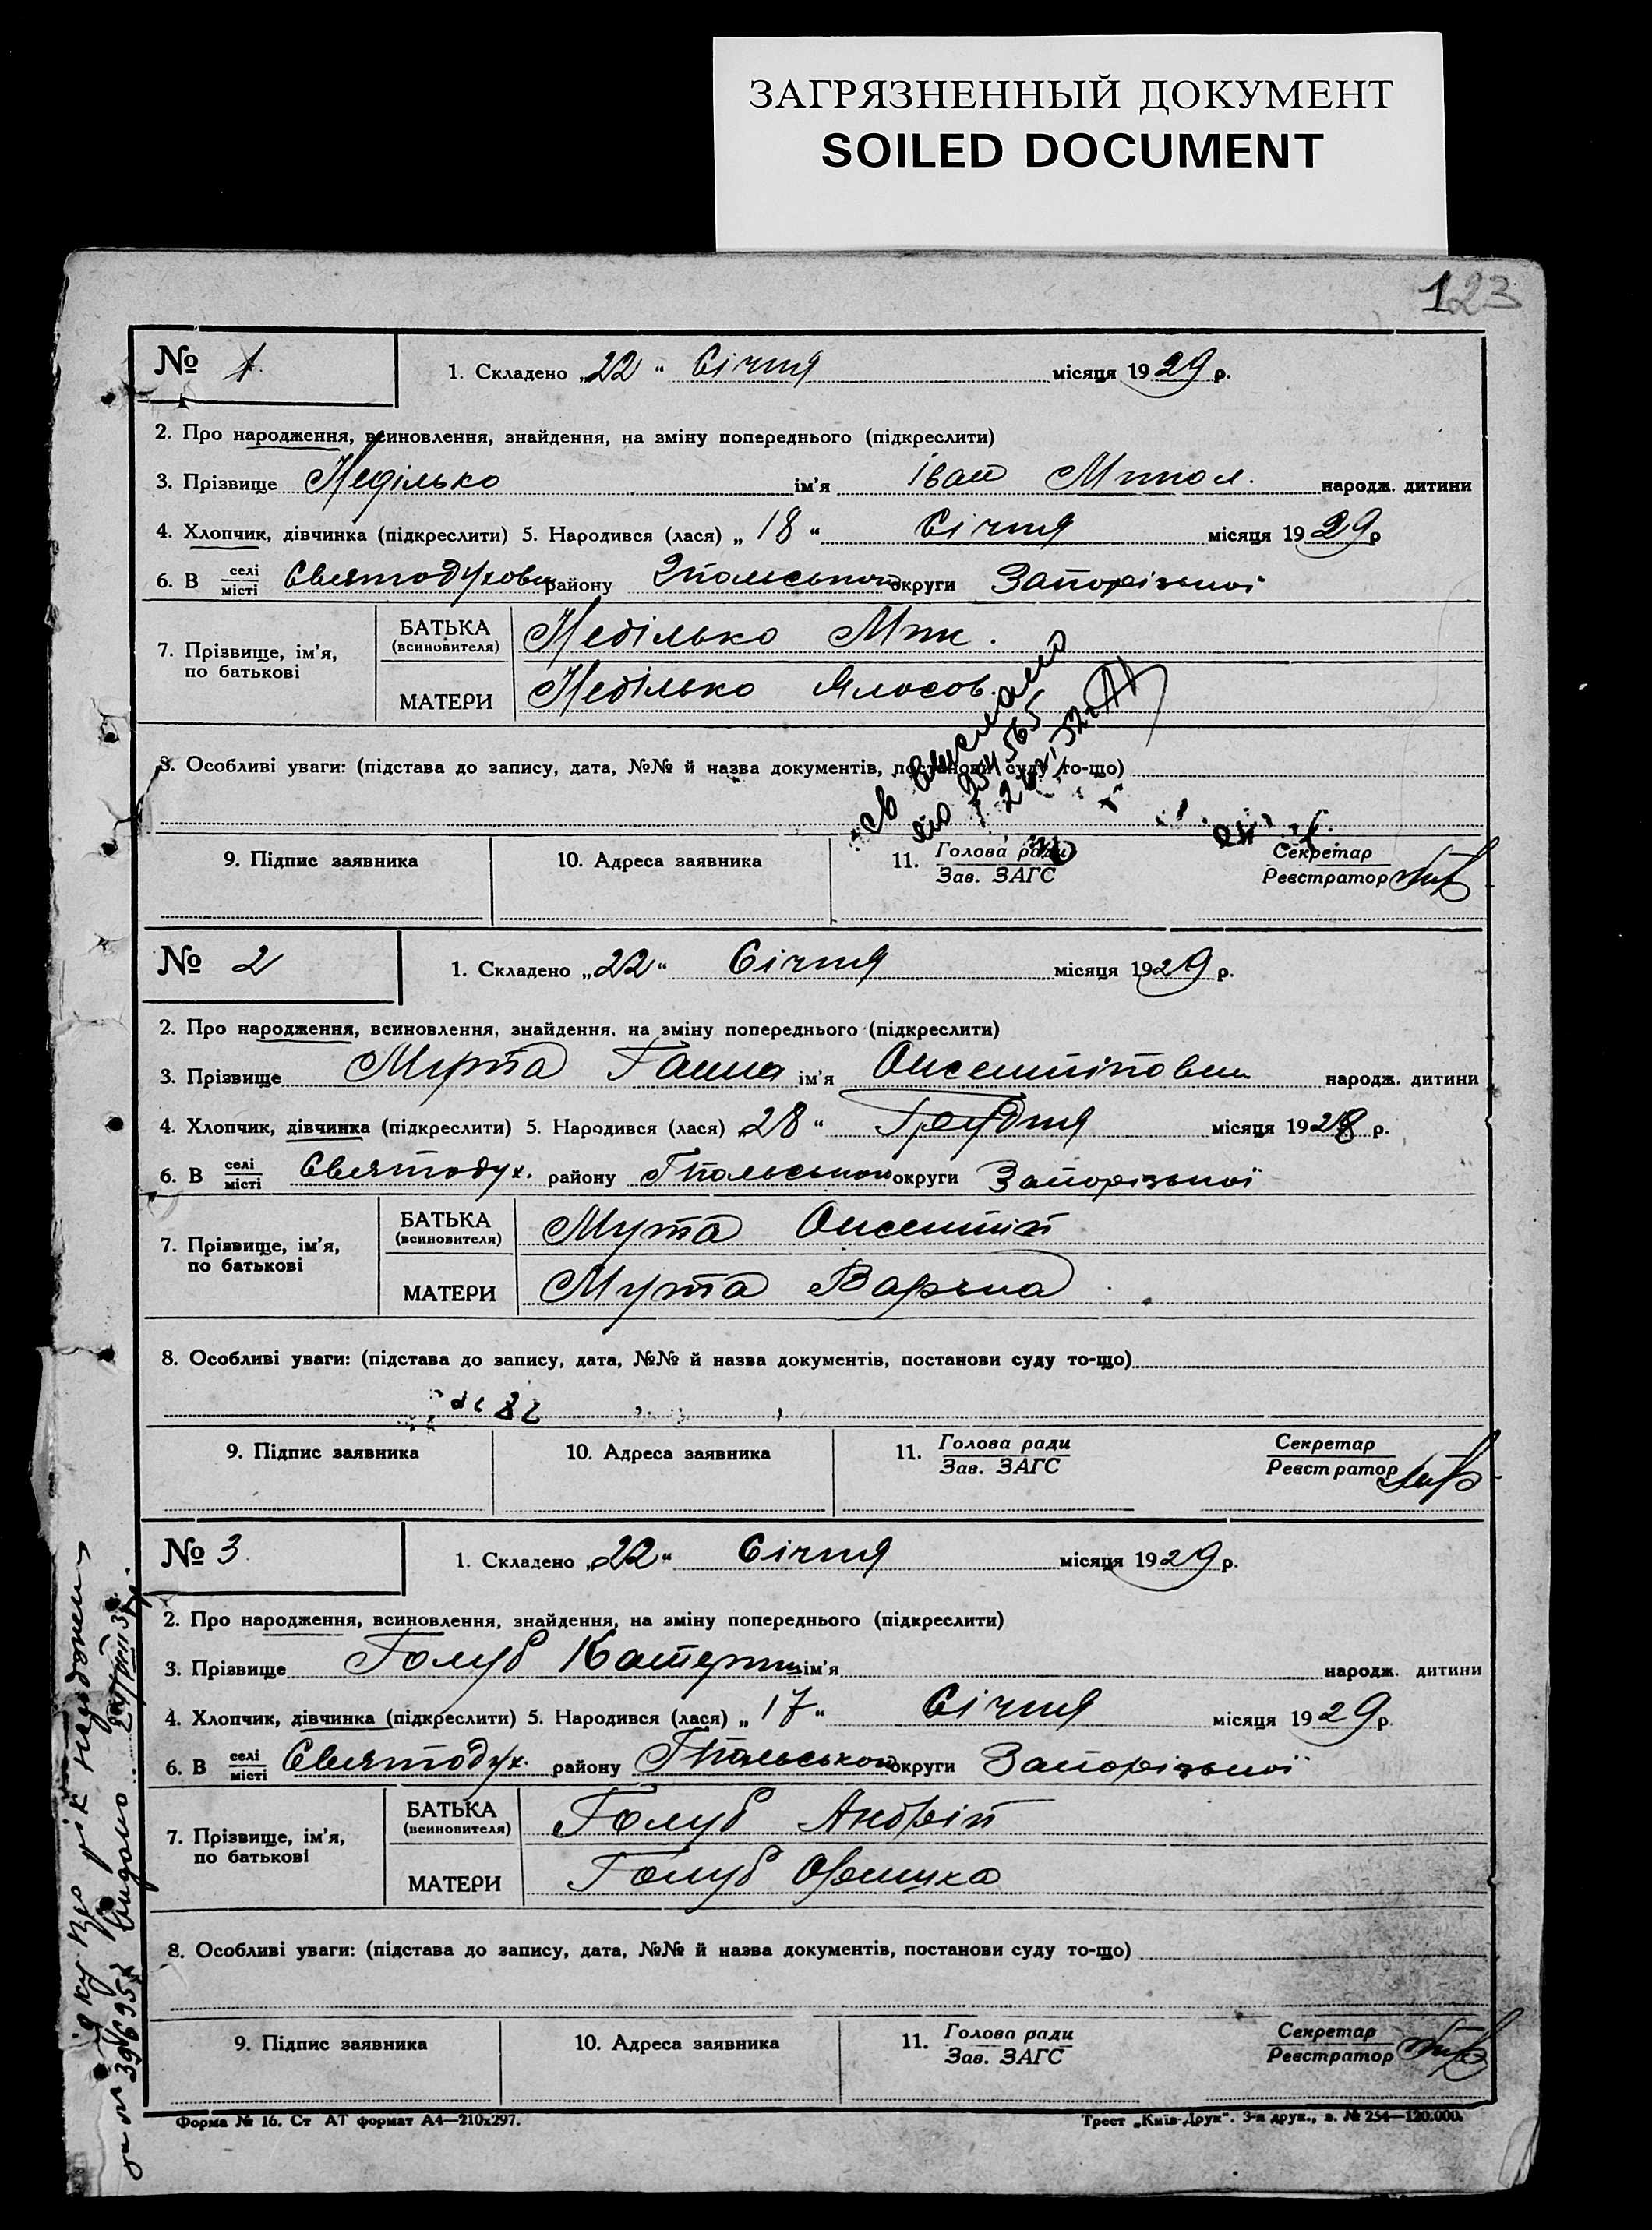 ЗАГРЯЗНЕННЫЙ ДОКУМЕНТ
SOILED DOCUMENT
123
№ 1. 1. Складено „22“ Січня місяця 1929 р.
2. Про народження, всиновлення, знайдення, на зміну попереднього (підкреслити)
3. Прізвище Неділько ім'я Іван Микол. народж. дитини
4. Хлопчик, дівчинка (підкреслити) 5. Народився (лася) „18“ Січня місяця 1929 р
6. В селі місті Святодуховці району округи Запорізької
7. Прізвище, ім'я, по батькові
БАТЬКА (всиновителя) Неділько Мик.
МАТЕРИ Неділько
8. Особливі уваги: (підстава до запису, дата, №№ й назва документів, постанови суду то-що)
254565
9. Підпис заявника 10. Адреса заявника 11. Голова ради Зав. ЗАГС Секретар Реєстратор
№ 2 1. Складено „22“ Січня місяця 1929 р.
2. Про народження, всиновлення, знайдення, на зміну попереднього (підкреслити)
3. Прізвище Мута Ганна ім'я Оксентіповна народж. дитини
4. Хлопчик, дівчинка (підкреслити) 5. Народився (лася) „28“ Грудня місяця 1928 р.
6. В селі місті Святодух. району округи Запорізької
7. Прізвище, ім'я, по батькові
БАТЬКА (всиновителя) Мута Оксентій
МАТЕРИ Мута
8. Особливі уваги: (підстава до запису, дата, №№ й назва документів, постанови суду то-що)
9. Підпис заявника 10. Адреса заявника 11. Голова ради Зав. ЗАГС Секретар Реєстратор
№ 3 1. Складено „22“ Січня місяця 1929 р.
2. Про народження, всиновлення, знайдення, на зміну попереднього (підкреслити)
3. Прізвище Голуб Катерина ім'я народж. дитини
4. Хлопчик, дівчинка (підкреслити) 5. Народився (лася) „17“ Січня місяця 1929 р.
6. В селі місті Святодух. району округи Запорізької
7. Прізвище, ім'я, по батькові
БАТЬКА (всиновителя) Голуб Андрій
МАТЕРИ Голуб
8. Особливі уваги: (підстава до запису, дата, №№ й назва документів, постанови суду то-що)
9. Підпис заявника 10. Адреса заявника 11. Голова ради Зав. ЗАГС Секретар Реєстратор
Форма № 16. Ст АТ формат А4—210х297.
Трест „Київ-Друк“. 3-я друк., з. № 254—120.000.